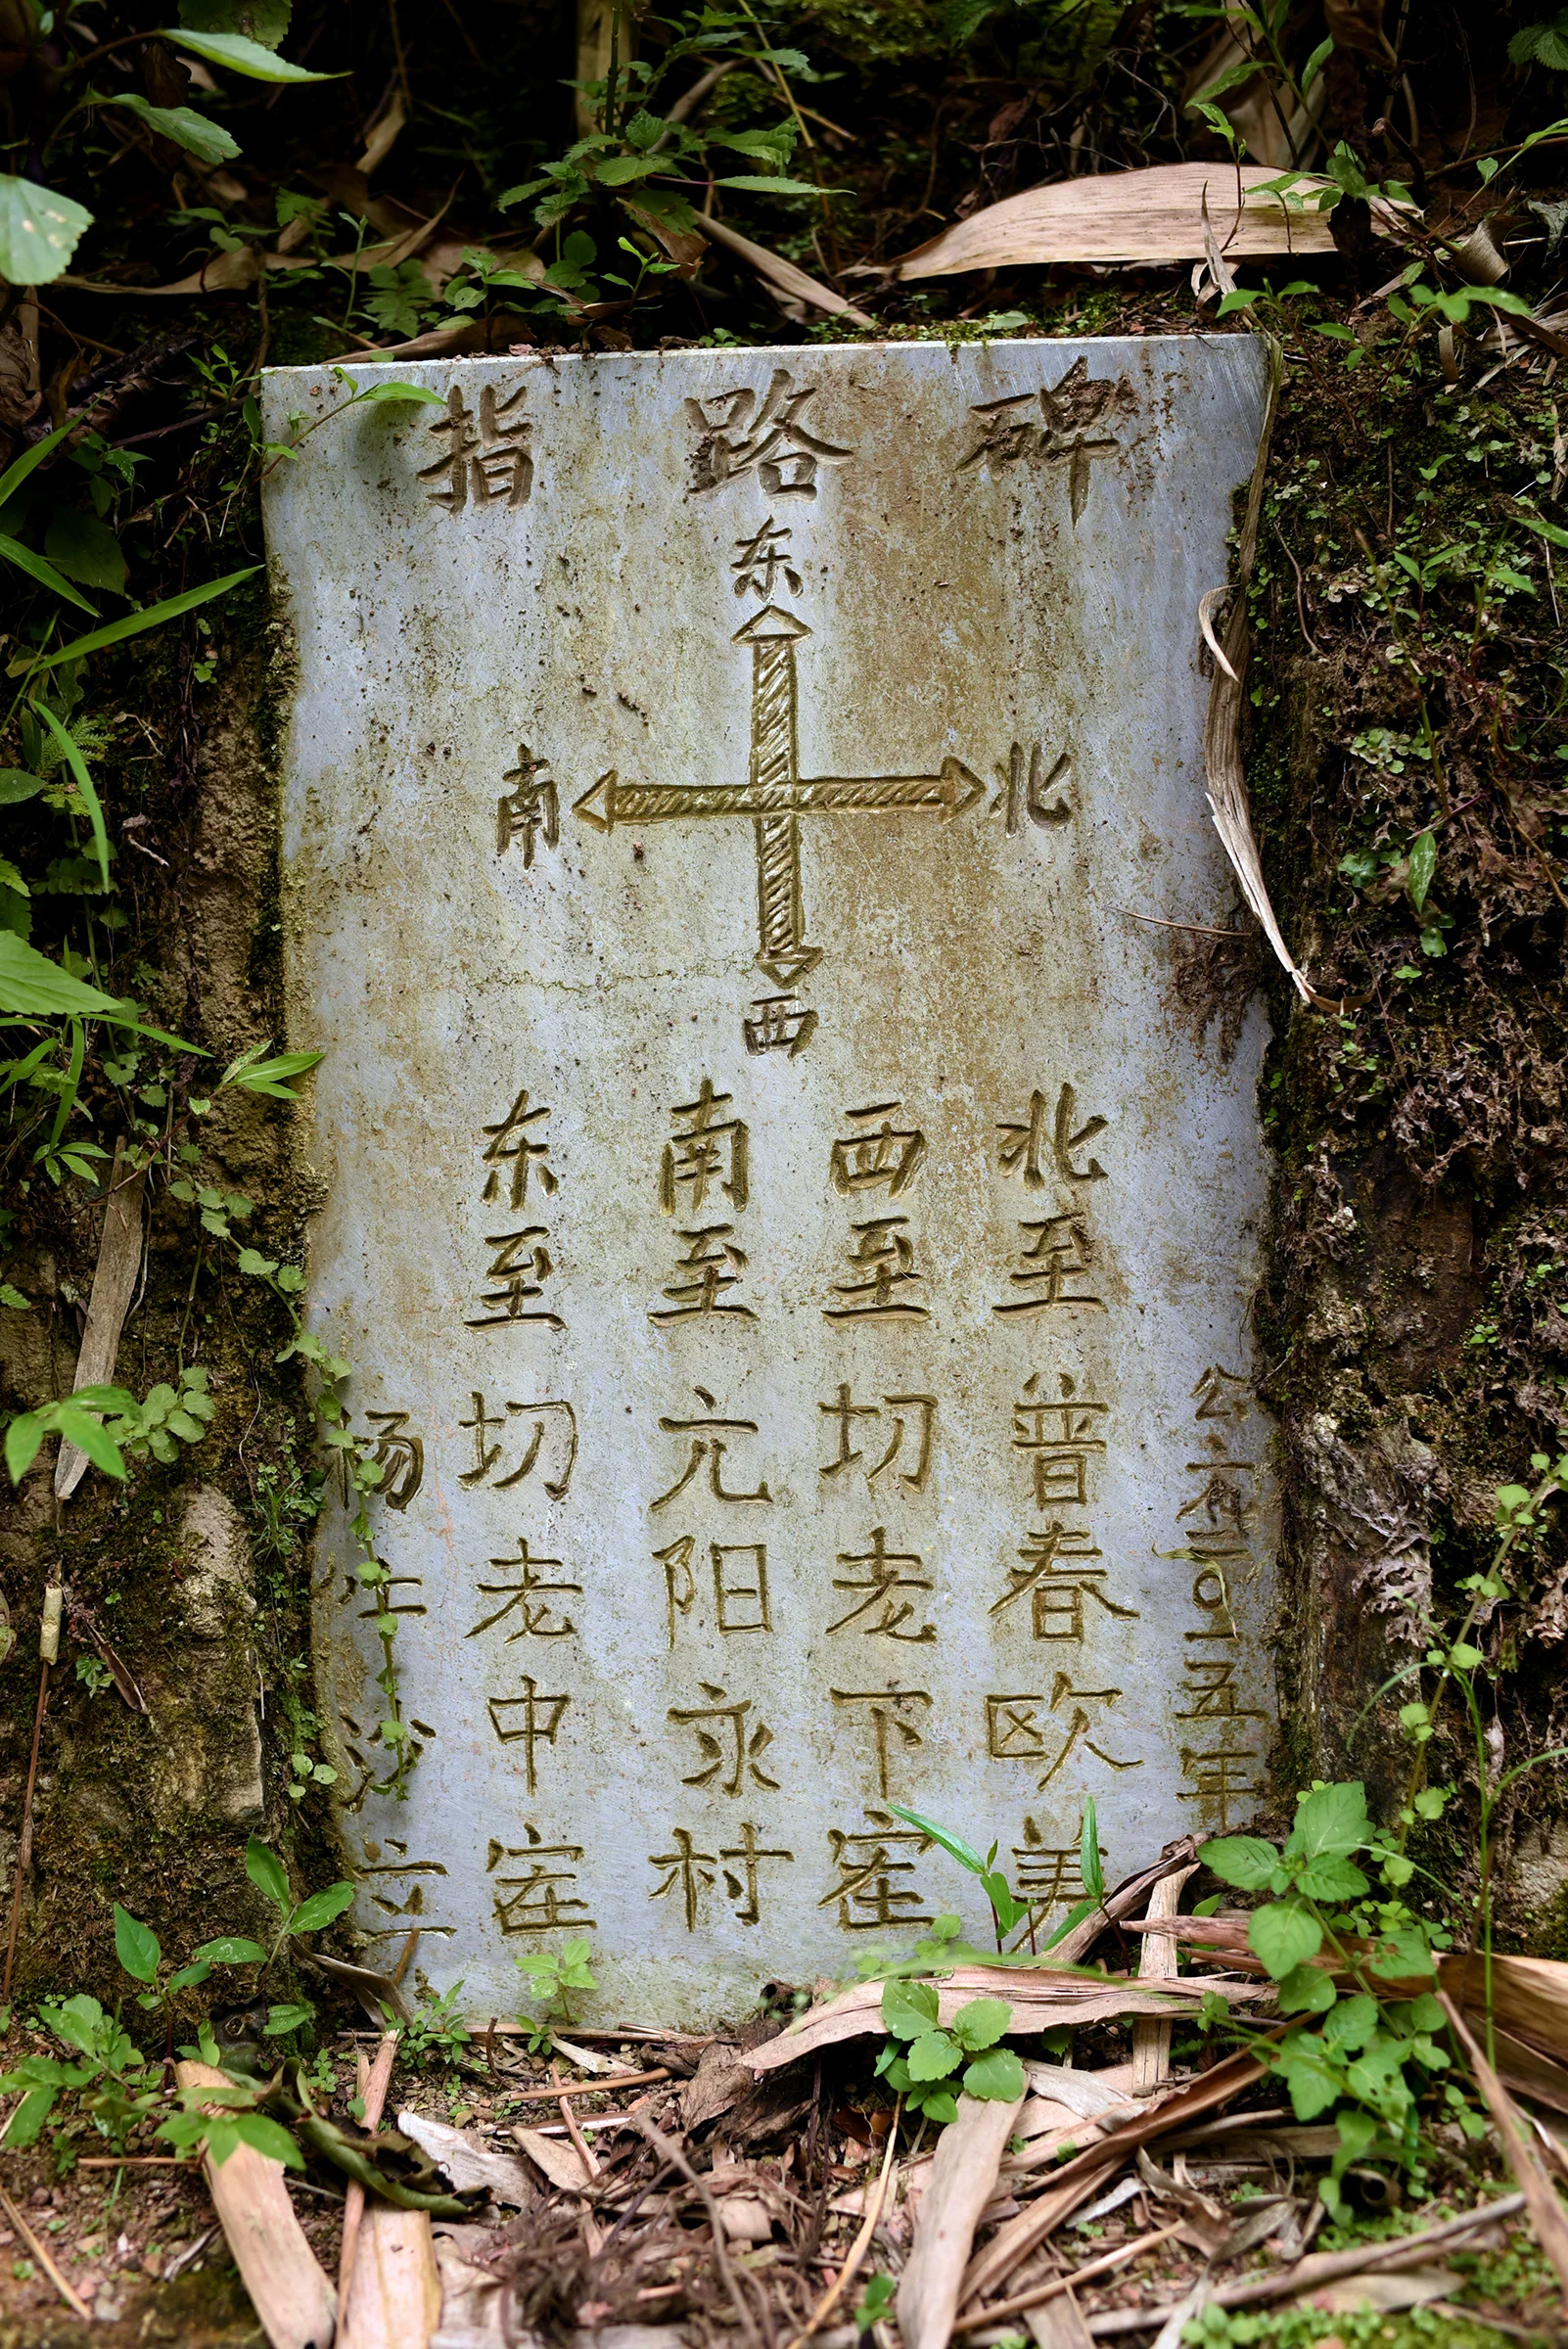 指路碑
东
南 北
西
杨 沙立
东至切老中寨
南至元阳永村
西至切老下寨
北至普春欧美
公元二〇一五年